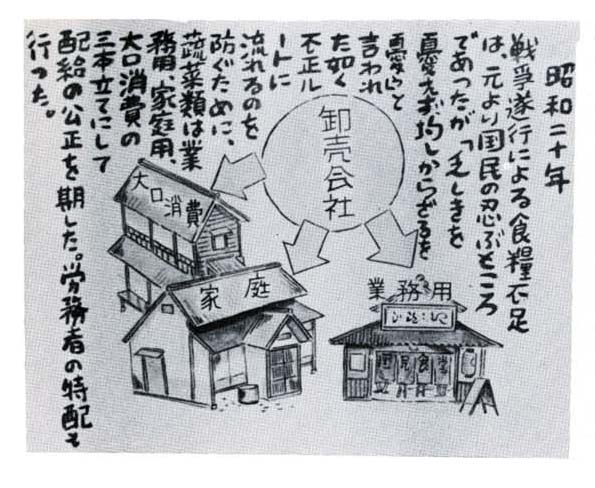 昭和二十年
戦争遂行による食糧不足
は、元より国民の忍ぶところ
であったが「乏しきを
憂えず均しからざるを
憂う」と
言われ
た如く
不正ル
ートに
流れるのを
防ぐために、
蔬菜類は業
務用、家庭用、
大口消費の
三本立てにして
配給の公正を期した。労務者の特配も
行った。
卸売会社
大口消費
家庭
業務用
国民食堂